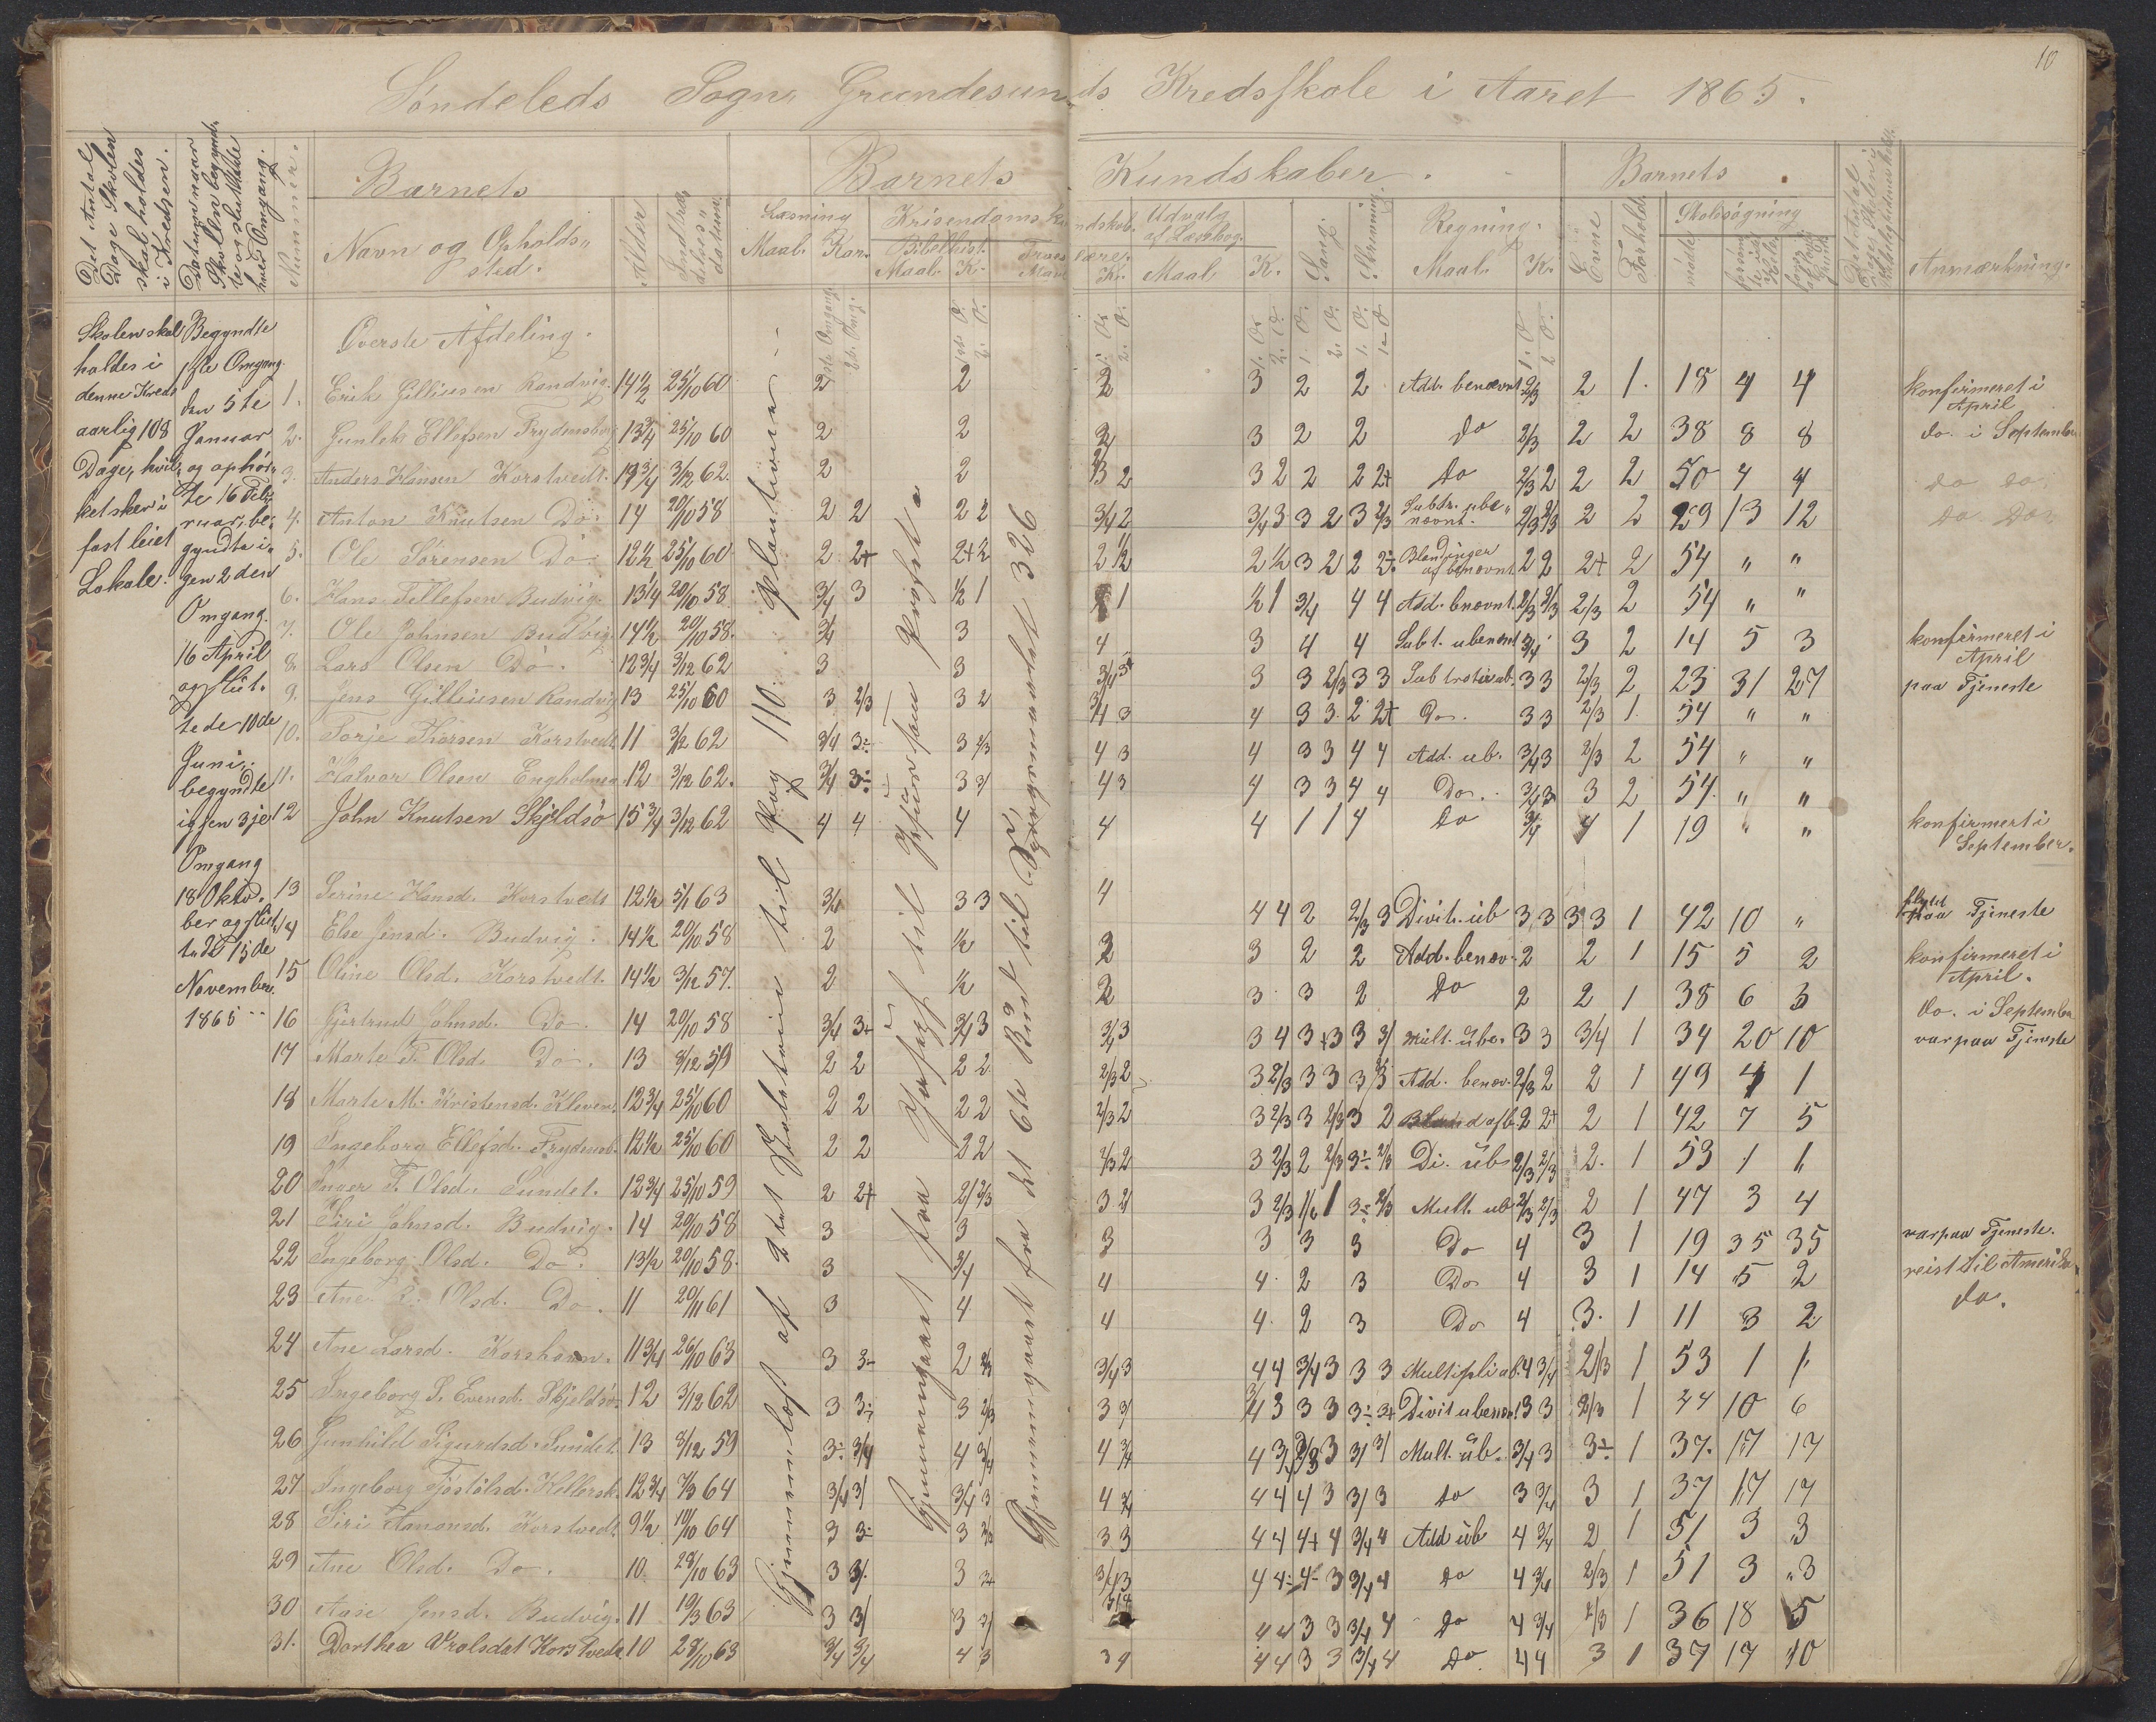 10
Søndeleds Sogn, Grundesunds Kredsskole i Aaret 1865.
Det Antal Dage Skolen skal holdes i Kredsen.
Datum naar Skolen begynd. og sluttede hver Omgang.
Nummer.
Barnets
Navn og Opholds„
sted.
Alder
Indtræ„
delses„
datum.
Barnets Kundskaber.
Læsning
Maal. Kar.
Kristendomskundskab.
Bibelhist.
Maal. K.
Troeslære.
Maal Kr.
Udvalg
af Læsebog.
Maal. K.
Sang.
Skrivning.
Regning.
Maal. K.
Barnets
Evne
Forhold.
Skolesøgning
mødt
Anmærkning.
Skolen skal
holdes i
denne Kreds
aarlig 108
Dage, hvil„
ket sker i
fast leiet
Lokale.
Begyndte
1ste Omgang
den 5te
Januar
og ophør„
te 16 Feb„
ruar, be„
gyndte i„
gen 2den
Omgang.
16 April
og slut„
tede 10de
Juni,
begyndte
igjen 3je
Omgang
18 Okto„
ber og slut„
tede 15de
November.
1865
Øverste Afdeling.
1. Erik Gilliusen Randvig. 14½ 25/10 60 2 2 2 3 2 2 Add. benævnt 2/3 2 1. 18 4 4 konfirmeret i April
2. Gunlek Ellefsen Frydensborg 13¾ 25/10 60 2 2 2 3 2 2 do 2/3 2 2 38 8 8 do. i September
3. Anders Hansen Korstvedt. 13¾ 3/12 62. 2 2 2/3 2 3 2 2 2 2+ do 2/3 2 2 2 50 4 4 do do.
4. Anton Knutsen Do. 14 20/10 58 2 2 2 2 3/4 2 3/4 3 3 2 3 2/3 Subtr. ube„nævnt. 2/3 2/3 2 2 29 13 12 do do
5. Ole Sørensen Do. 12½ 25/10 60 2 2+ 2+ ½ 2 ½ 2 ½ 3 2 2 2÷ Blandinger af benævnt 2 2 2+ 2 54 „ „
6. Hans Tellefsen Budvig. 13¼ 20/10 58 3/4 3 ½ 1 1 ½ 1 3/4 4 4 Add. bnævnt. 2/3 2/3 2/3 2 54 „ „
7. Ole Johnsen Budvig. 14½ 20/10 58. 3/4 3 4 3 4 4 Subt. ubenævnt 3/4 3 2 14 5 3 konfirmeret i April
8. Lars Olsen Do. 12¾ 3/12 62 3 3 3/4 3 3 3 2/3 3 3 Subtraktion ub. 3 3 2/3 2 23 31 27 paa Tjeneste
9. Jens Gilliusen Randvig 13 25/10 60 3 2/3 3 2 3/4 3 4 3 3 2 2+ Do. 3 3 2/3 1. 54 „ „
10. Torje Thorsen Korstvedt 11 3/12 62 3/4 3÷ 3 2/3 4 3 4 3 3 4 4 Add. ub. 3/4 3 2/3 2 54 „ „
11. Halvor Olsen Engholmen 12 3/12 62. 3/4 3÷ 3 3/ 4 3 4 3 3 4 4 Do. 3/4 3 3 2 54. „ „
12 John Knutsen Skjeldsø 15¾ 3/12 62 4 4 4 4 4 1 1 4 do 3/4 4 1 19 „ „ konfirmert i September.
13 Serine Hansd. Korstvedt 12½ 5/1 63 3/4 3 3 4 4 4 2 2/3 3 Divit. ub 3 3 3 3 1 42 10 „ flyttet paa Tjeneste
14 Else Jensd. Budvig. 14½ 20/10 58 2 ½ 2 3 2 2 Add. benæv. 2 2 1 15 5 2 konfirmeret i April.
15 Oline Olsd. Korstvedt. 14½ 3/12 57. 2 ½ 2 3 3 2 do 2 2 1 38 6 3 do. i September
16 Gjertrud Johnsd. Do. 14 20/10 58 3/4 3+ 3/4 3 3/4 3 3 4 3 +3 3 3/ Mult. ube. 3 3 3/4 1 34 20 10 var paa Tjeneste
17 Marte T. Olsd. Do. 13 3/12 59 2 2 2 2 2/3 2 3 2/3 3 3 3 /3 Add. benæv. 2/3 2 2 1 49 4 1
18 Marte M. Kristensd. Kleven. 12¾ 25/10 60 2 2 2 2 2/3 2 3 2/3 3 2/3 3 2 Bland af b. 2 2+ 2 1 42 7 5
19 Ingeborg Ellefsd. Frydensb. 12½ 25/10 60 2 2 2 2 2/3 2 3 2/3 2 2/3 3÷ 2/3 Di. ub 2/3 2/3 2. 1 53 1 1
20 Inger T. Olsd. Sundet. 12¾ 25/10 59 2 2+ 2/ 2/3 3 2/ 3 2/3 ½ 1 3÷ 2/3 Mult. ub 2/3 2/3 2 1 47 3 4
21 Siri Johnsd. Budvig. 14 20/10 58 3 3 3 3 3 3 Do 4 3 1 19 35 35 var paa Tjeneste.
22 Ingeborg Olsd. Do. 13½ 20/10 58. 3 3/4 4 4. 2 3 Do 4 3 1 14 5 2 reist til Amerika
23 Ane Olsd. Do. 11 20/11 61 3 4 4 4. 2 3 Do 4 3. 1 11 3 2 do.
24 Ane Larsd. Korshavn. 11¾ 26/10 63 3 3÷ 2 2/3 3/4 3 4 4 3/4 3 3 3 Multipli ub. 4 3/4 2/3 1 53 1 1
25 Ingeborg S. Evensd. Skjeldsø 12 3/12 62 3 3÷ 3 2/3 3 3/ 3/4 3 3 3 3÷ 3+ Divit ubenæv. 3 3 2/3 1 44 10 6
26 Gunhild Sigurdsd. Sundet. 13 3/12 59 3÷ 3/4 4 3/4 4 3/4 4 3/ 3 3/ 3/ Mult. ub. 3/4 3 3÷ 1 37. 17 17
27 Ingeborg Tjøstølsd. 12¾ 7/3 64 3/4 3/ 3/4 3 4 3/4 4 4 4 3 3/ 3 do 3 3/4 3 1 37 17 17
28 Siri Aanonsd. Korstvedt. 9½ 10/10 64 3 3÷ 3 2/3 3 3 4 4 4+ 4 3/4 4 Add ub 4 3/4 2 1 51 3 3
29 Ane Olsd. Do. 10. 28/10 63 3 3/. 3 3+ 3/4 3 4 4÷ 4÷ 3 3/4 4 do 4 3/4 2/3 1 51 3 3
30 Aase Jensd. Budvig. 11 19/3 63 3 3/ 3 3/ 3/4 4 4 3 3 3/4 4 do 4 3/4 2/3 1 36 18 5
31. Dorthea Vralsdat Korstvedt 10 28/10 63 3/4 3/4 4 3 3 4 4 4 3 3 3/4 4 Do. 4 4 3 1 37 17 10
Gjennemlæst af 2det Skoletrin til Pag 110. Plantiver
Gjennemgaaet fra Josef til Pjort
Gjennemgaaet fra det 6te Bud til Spørgsmaalet 326